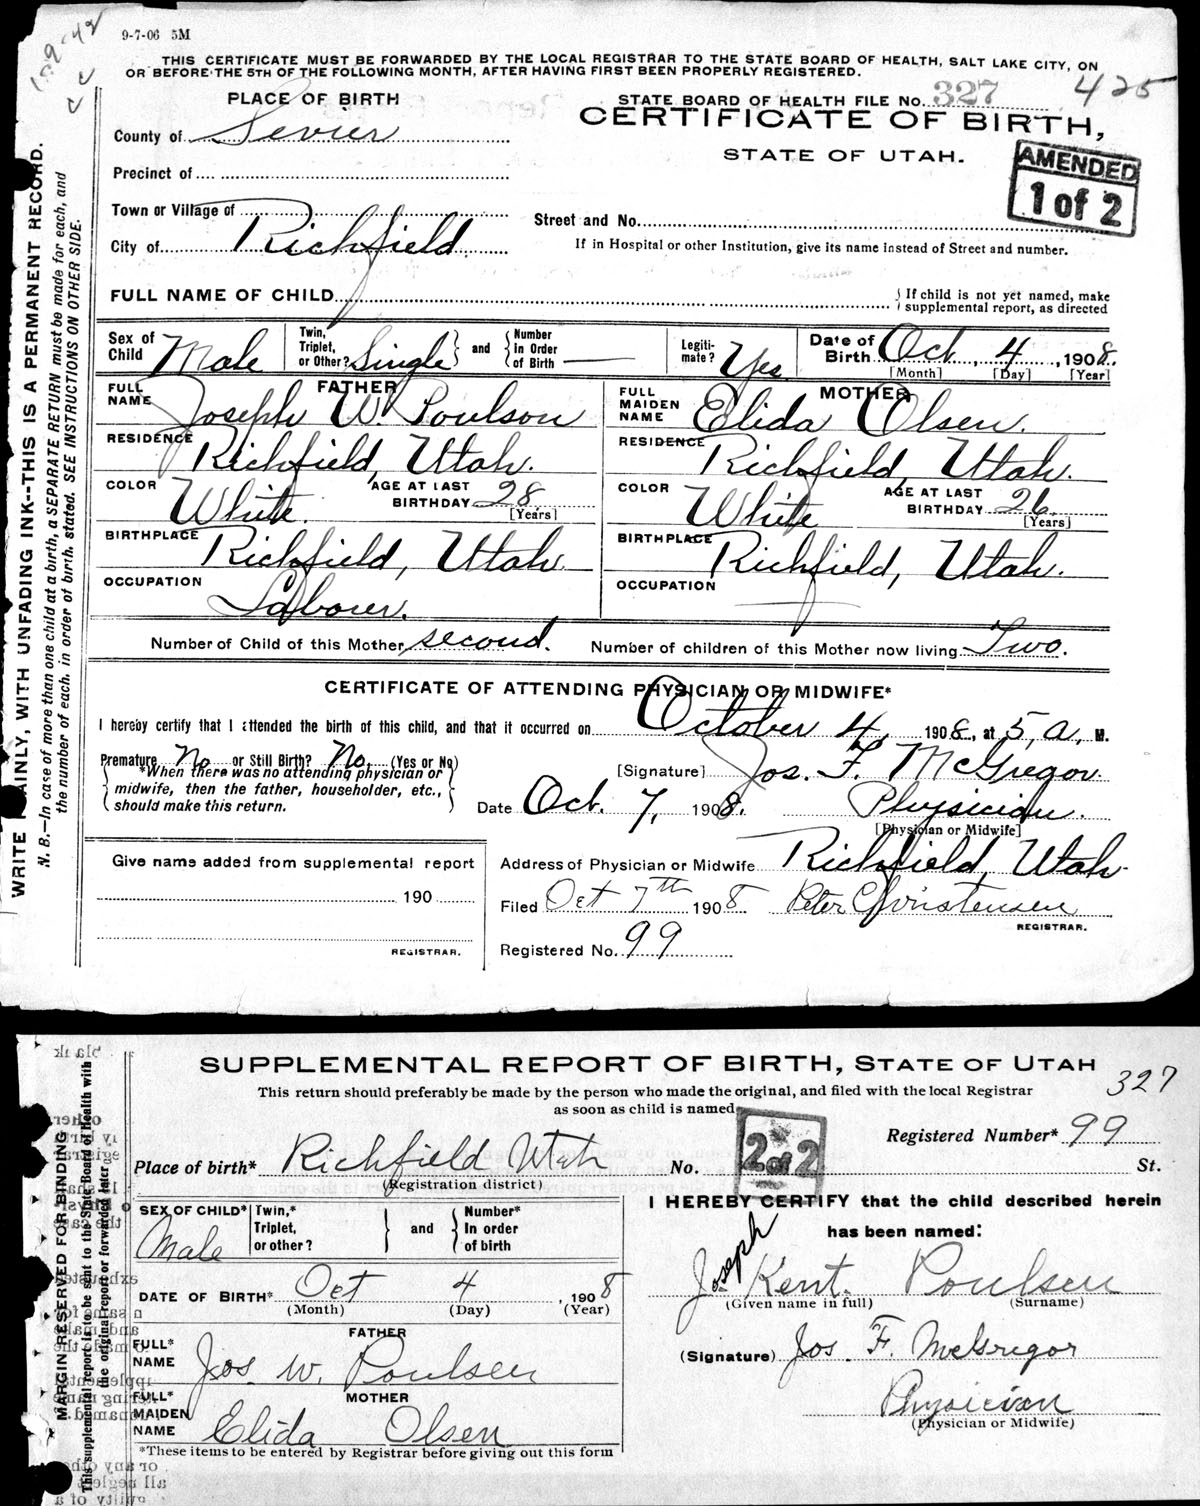 9-7-06 5M
THIS CERTIFICATE MUST BE FORWARDED BY THE LOCAL REGISTRAR TO THE STATE BOARD OF HEALTH, SALT LAKE CITY, ON
OR BEFORE THE 5TH OF THE FOLLOWING MONTH, AFTER HAVING FIRST BEEN PROPERLY REGISTERED.
425
PLACE OF BIRTH
STATE BOARD OF HEALTH FILE No. 327
CERTIFICATE OF BIRTH,
STATE OF UTAH.
AMENDED
1 of 2
County of Sevier
Precinct of
Town or Village of
City of Richfield
Street and No.
If in Hospital or other Institution, give its name instead of Street and number.
FULL NAME OF CHILD
If child is not yet named, make
supplemental report, as directed
Sex of Child Male
Twin, Triplet, or Other? Single and Number in Order of Birth —
Legiti-mate? Yes
Date of Birth Oct. 4, 1908.
[Month] [Day] [Year]
FATHER
FULL NAME Joseph W. Poulson
RESIDENCE Richfield, Utah.
COLOR White. AGE AT LAST BIRTHDAY 28
[Years]
BIRTHPLACE Richfield, Utah.
OCCUPATION Laborer.
MOTHER
FULL MAIDEN NAME Elida Olsen.
RESIDENCE Richfield, Utah.
COLOR White AGE AT LAST BIRTHDAY 26
[Years]
BIRTHPLACE Richfield, Utah.
OCCUPATION
Number of Child of this Mother second. Number of children of this Mother now living Two.
CERTIFICATE OF ATTENDING PHYSICIAN OR MIDWIFE*
I hereby certify that I attended the birth of this child, and that it occurred on October 4, 1908, at 5, a. M.
Premature No or Still Birth? No. (Yes or No)
*When there was no attending physician or
midwife, then the father, householder, etc.,
should make this return.
[Signature] Jos. F. McGregor
Date Oct. 7, 1908. Physician.
[Physician or Midwife]
Give name added from supplemental report
190
REGISTRAR.
Address of Physician or Midwife Richfield, Utah.
Filed Oct 7th 1908 Peter Christensen
REGISTRAR.
Registered No. 99
WRITE PLAINLY, WITH UNFADING INK--THIS IS A PERMANENT RECORD.
N. B.—In case of more than one child at a birth, a SEPARATE RETURN must be made for each, and
the number of each, in order of birth, stated. SEE INSTRUCTIONS ON OTHER SIDE.
SUPPLEMENTAL REPORT OF BIRTH, STATE OF UTAH
327
This return should preferably be made by the person who made the original, and filed with the local Registrar
as soon as child is named
2 of 2
Registered Number* 99
Place of birth* Richfield Utah No. St.
(Registration district)
SEX OF CHILD* Male
Twin,* Triplet, or other? and Number* In order of birth
DATE OF BIRTH* Oct 4, 1908
(Month) (Day) (Year)
FATHER
FULL* NAME Jos. W. Poulsen
MOTHER
FULL* MAIDEN NAME Elida Olsen
*These items to be entered by Registrar before giving out this form
I HEREBY CERTIFY that the child described herein
has been named:
Joseph
Jos. Kent. Poulsen
(Given name in full) (Surname)
(Signature) Jos. F. McGregor
Physician
(Physician or Midwife)
MARGIN RESERVED FOR BINDING
This supplemental report is to be sent to the State Board of Health with
the original report or forwarded later